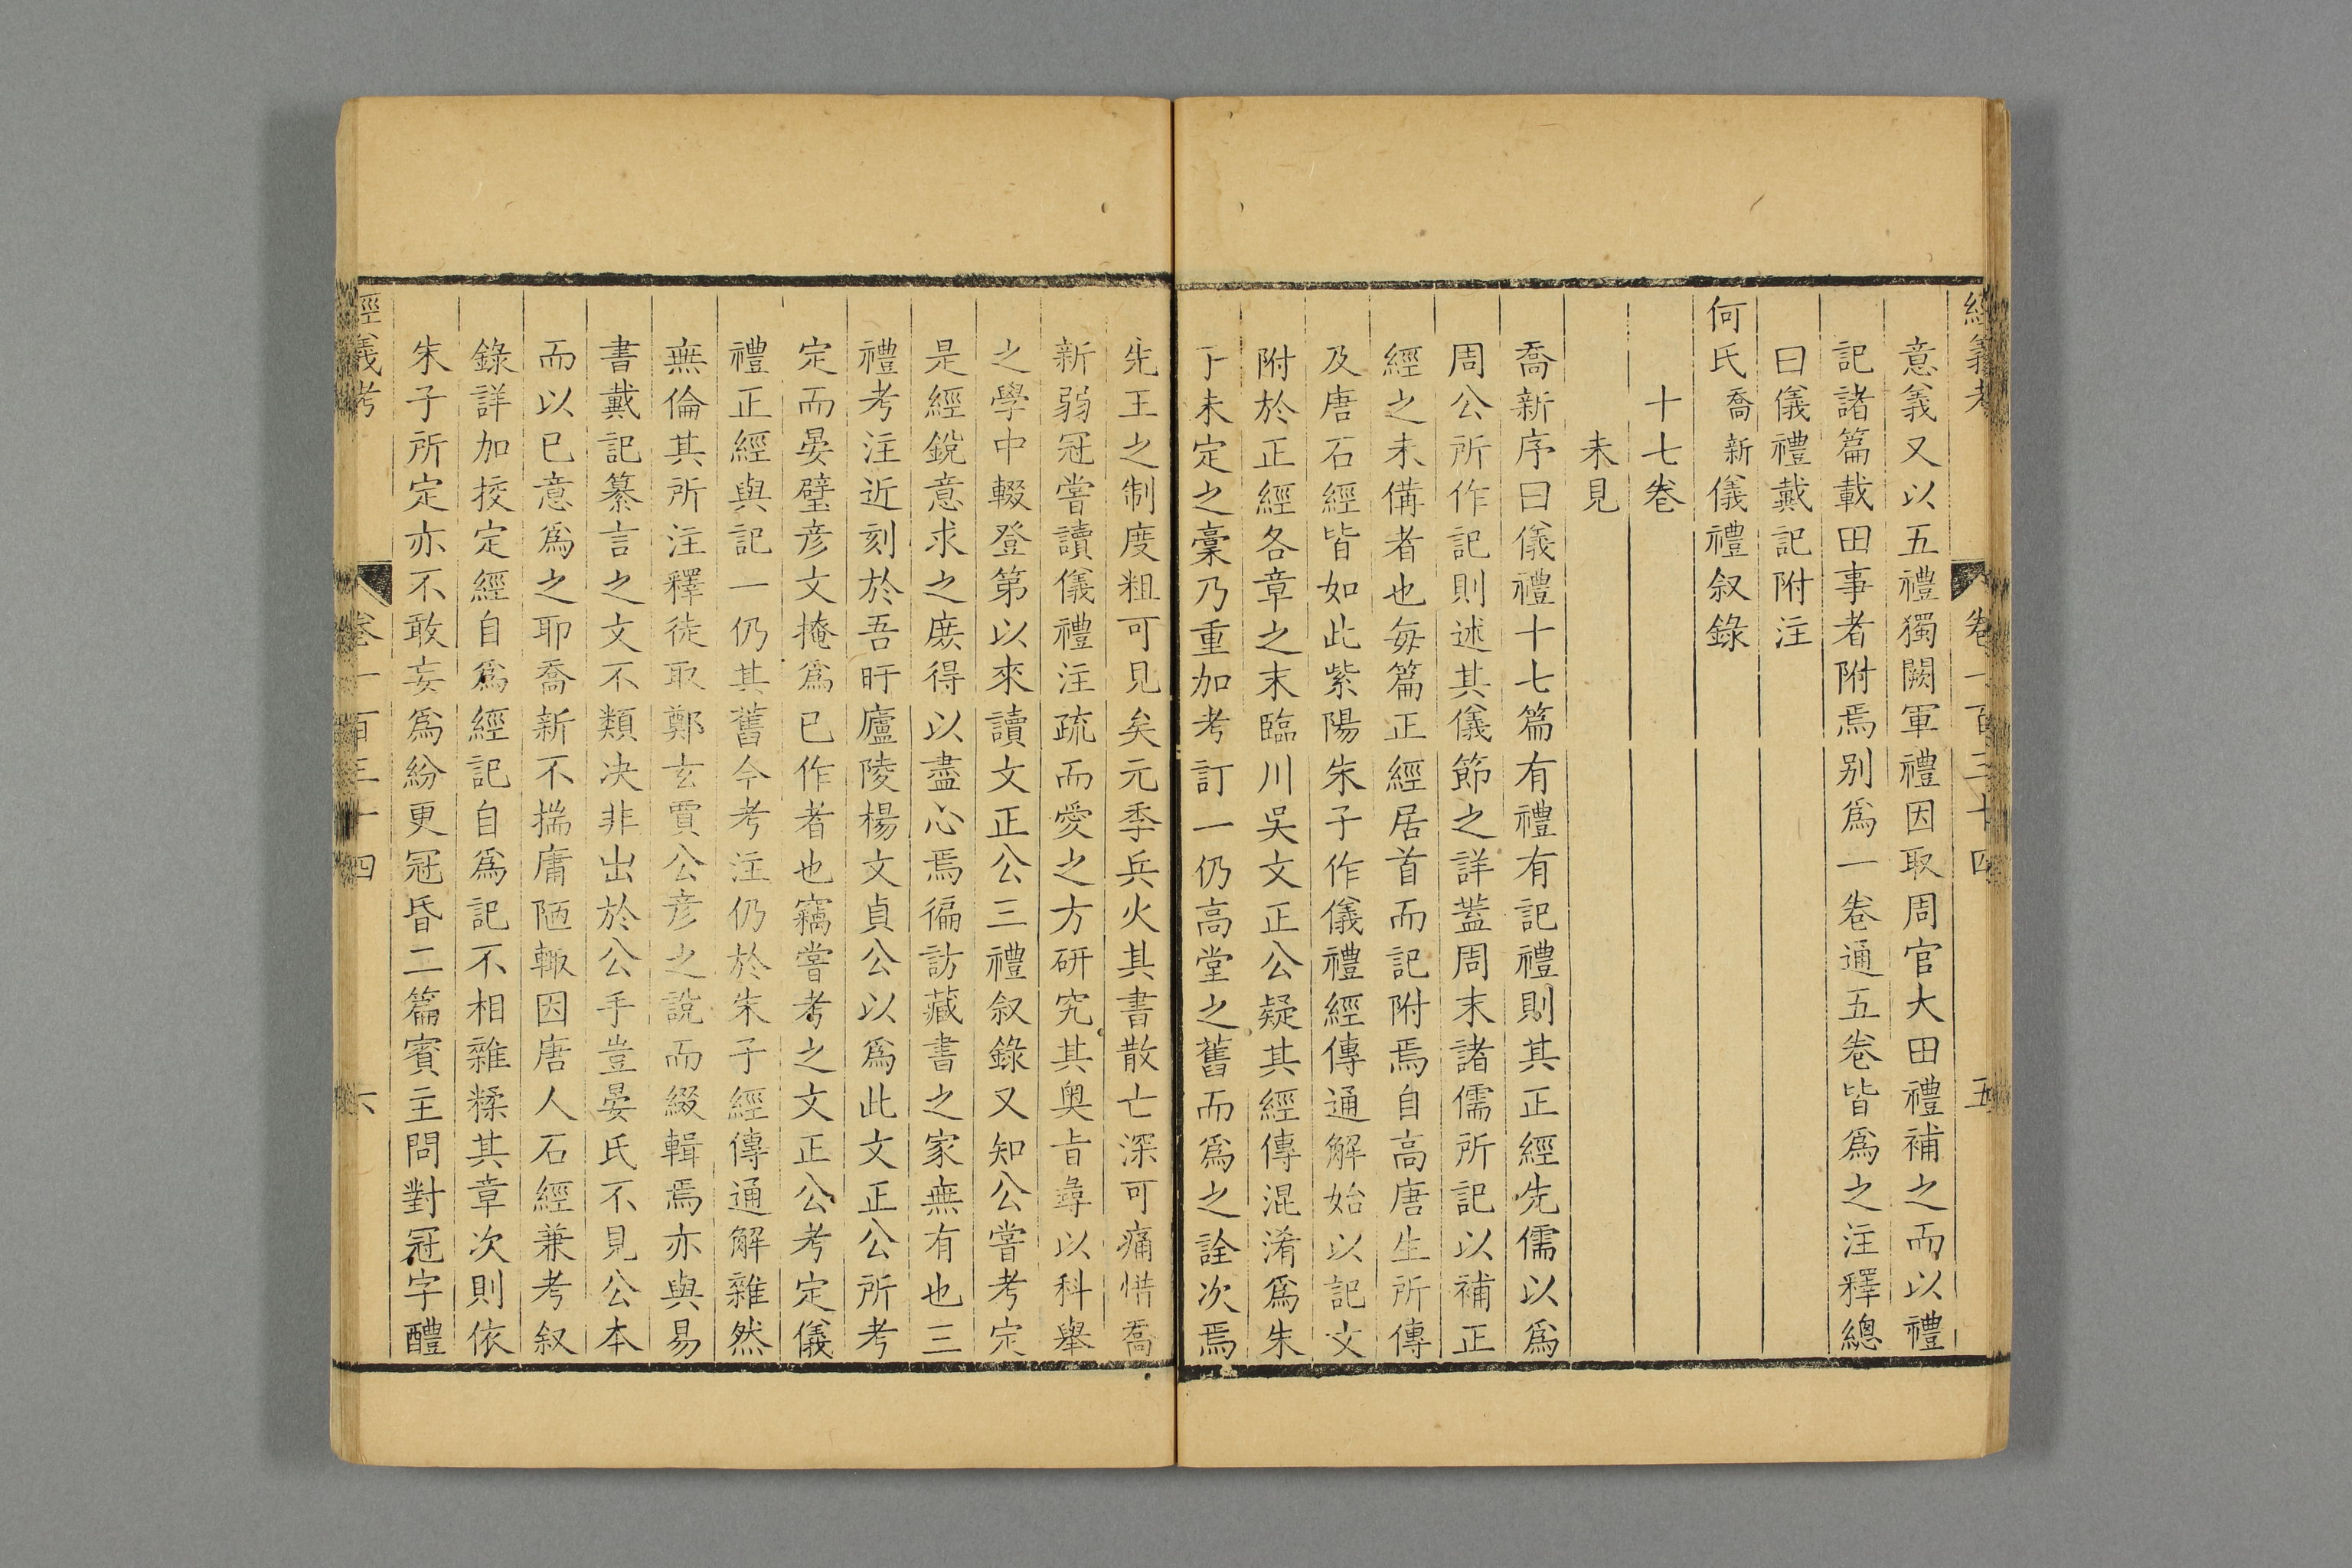 經義考 卷一百三十四 五
意義又以五禮獨闕軍禮因取周官大田禮補之而以禮
記諸篇載田事者附焉别爲一卷通五卷皆爲之注釋總
曰儀禮戴記附注
何氏喬新儀禮叙錄
十七卷
未見
喬新序曰儀禮十七篇有禮有記禮則其正經先儒以爲
周公所作記則述其儀節之詳葢周末諸儒所記以補正
經之未備者也每篇正經居首而記附焉自高唐生所傳
及唐石經皆如此紫陽朱子作儀禮經傳通解始以記文
附於正經各章之末臨川吳文正公疑其經傳混淆爲朱
子未定之稾乃重加考訂一仍高堂之舊而爲之詮次焉
先王之制度粗可見矣元季兵火其書散亡深可痛惜喬
新弱冠嘗讀儀禮注疏而愛之方研究其奥旨尋以科舉
之學中輟登第以來讀文正公三禮叙錄又知公嘗考定
是經銳意求之庶得以盡心焉徧訪藏書之家無有也三
禮考注近刻於吾旴廬陵楊文貞公以爲此文正公所考
定而晏璧彦文掩爲已作者也竊嘗考之文正公考定儀
禮正經與記一仍其舊今考注仍於朱子經傳通解雜然
無倫其所注釋徒取鄭玄賈公彦之說而綴輯焉亦與易
書戴記纂言之文不類决非出於公手豈晏氏不見公本
而以已意爲之耶喬新不揣庸陋輙因唐人石經兼考叙
錄詳加挍定經自爲經記自爲記不相雜糅其章次則依
朱子所定亦不敢妄爲紛更冠昏二篇賓主問對冠字醴
經義考 卷一百三十四 六